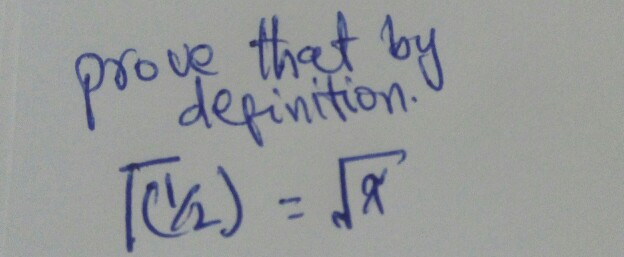 prove that by
definition.
Γ(1/2) = √π